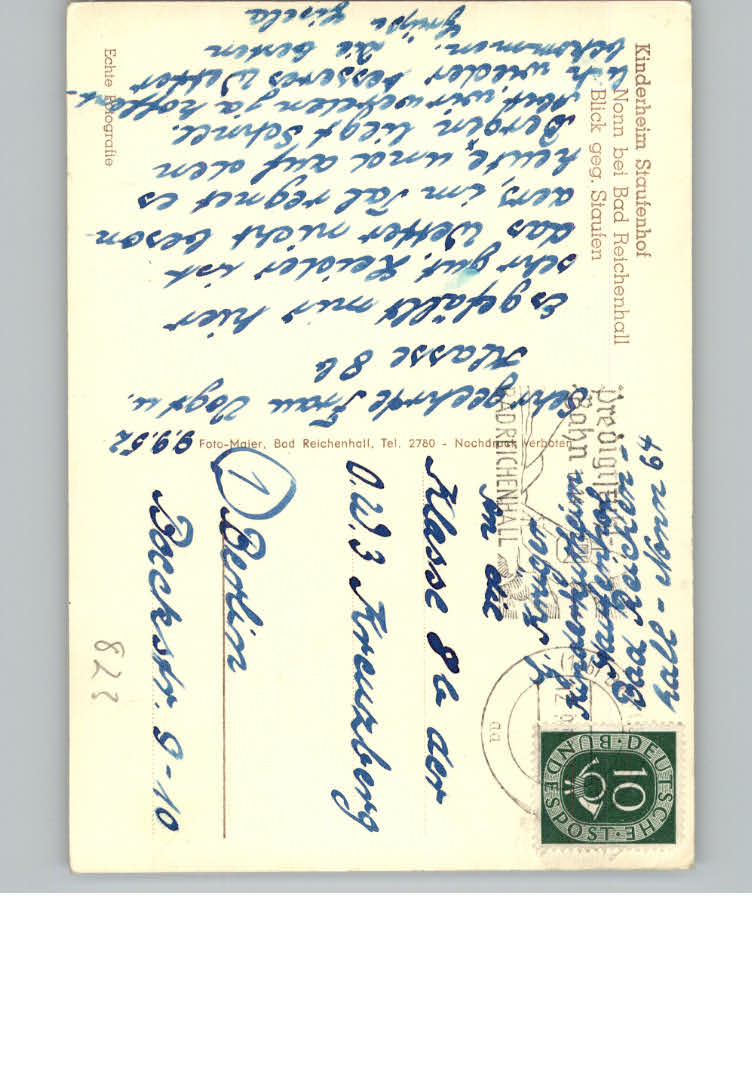 Kinderheim Staufenhof
Nonn bei Bad Reichenhall
Blick geg. Staufen
9.9.52
Sehr geehrte Frau Vogt u.
Klasse 8b
Es gefällt mir hier
sehr gut. Leider ist
das Wetter nicht beson
ders, im Tal regnet es
heute, und auf den
Bergen liegt Schnee.
wir werden ja hoffent-
lich wieder besseres Wetter
bekommen. die besten
Grüße Gisela
Echte Fotografie
Foto-Maier, Bad Reichenhall, Tel. 2780 - Nachdruck verboten
Bad Reichen-
Nonn 64
BAD REICHENHALL
Bahn
DEUTSCHE BUNDESPOST
10
An die
Klasse 8b der
O.W.3 Kreuzberg
1 Berlin
Boeckstr. 9-10
823